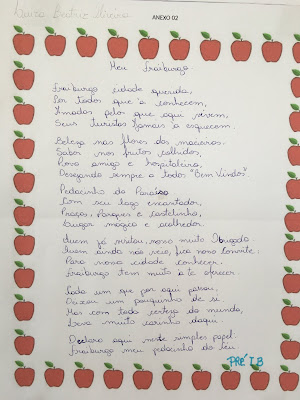 ANEXO 02
Meu Fraiburgo
Fraiburgo cidade querida,
Por todos que a conhecem,
Amados pelos que aqui vivem,
Seus turistas jamais a esquecem.
Beleza nas flores das macieiras.
Sabor nos frutos colhidos,
Povo amigo e hospitaleiro,
Desejando sempre a todos "Bem Vindos"
Pedacinho do Paraíso
Com seu lago encantador,
Praças, Parques e castelinho,
Lugar mágico e acolhedor.
Quem já visitou nosso muito Obrigado.
Quem ainda não veio, fica nosso convite.
Para nossa cidade conhecer.
Fraiburgo tem muito a te oferecer.
Cada um que por aqui passou,
Deixou um pouquinho de si
Mas com toda certeza do mundo,
Leva muito carinho daqui.
Declaro aqui neste simples papel
Fraiburgo meu pedacinho do céu
PRÉ I B